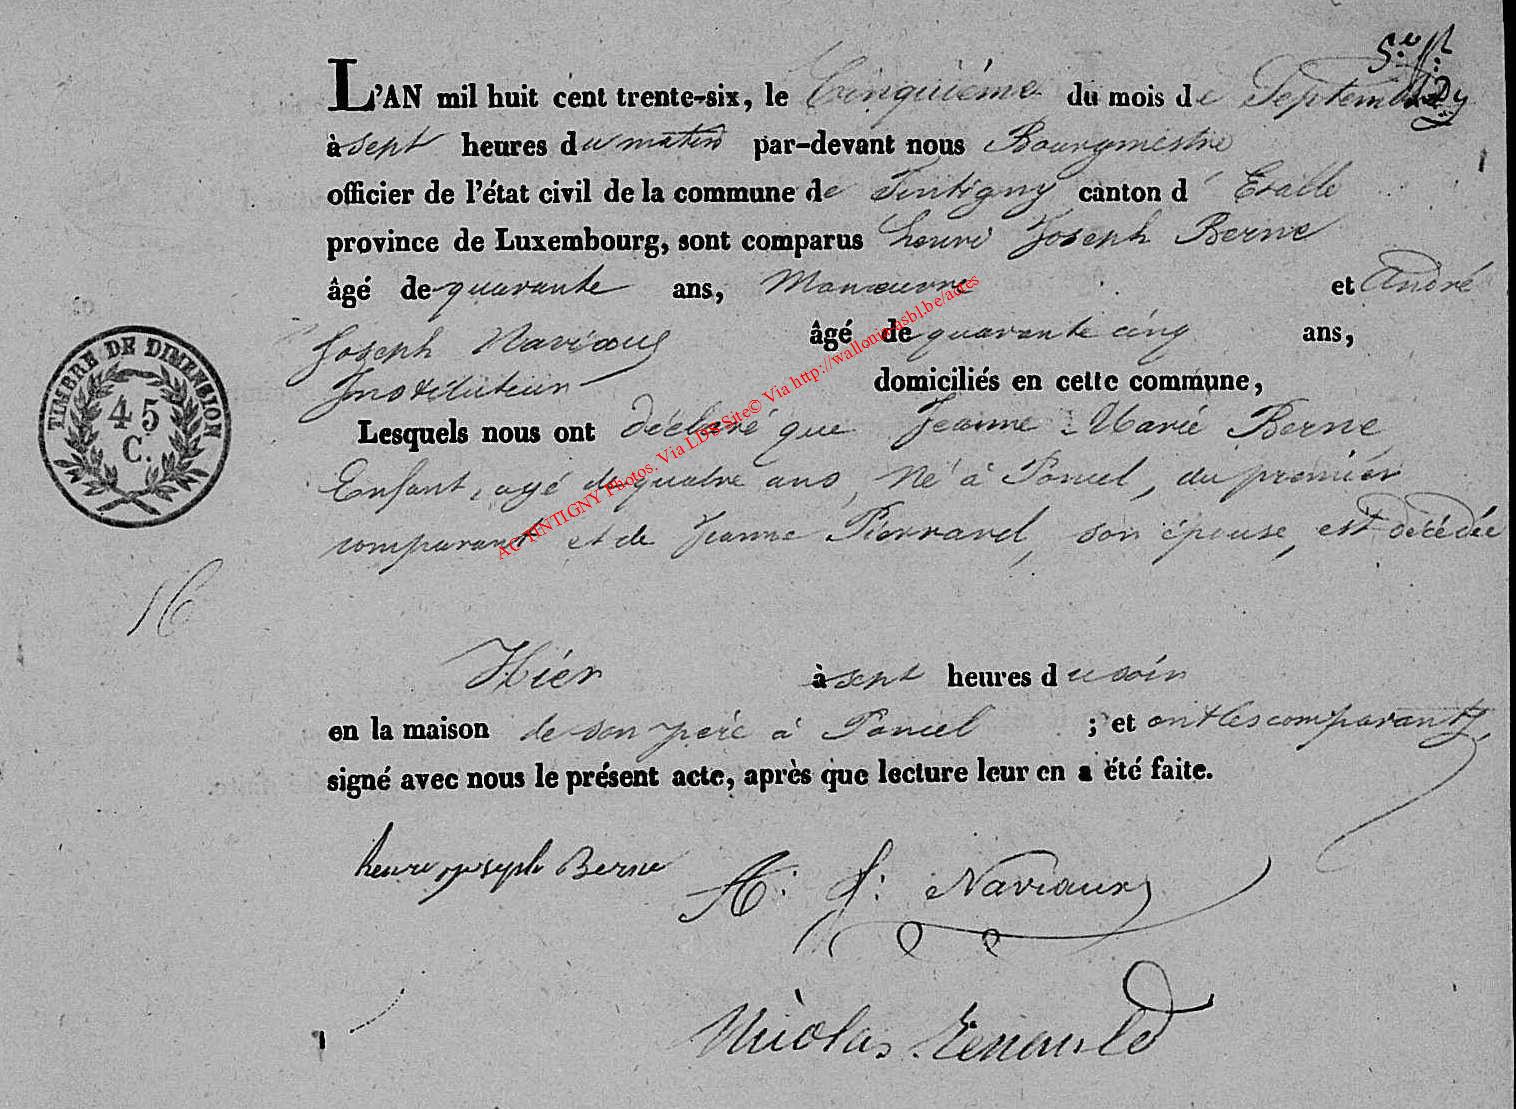 L'AN mil huit cent trente-six, le Cinquième du mois de Septembre
à sept heures du matin par-devant nous Bourgmestre
officier de l'état civil de la commune de Tintigny canton d' Etalle
province de Luxembourg, sont comparus henri Joseph Berne
âgé de quarante ans, Manœuvre et André
Joseph Naviaux âgé de quarante cinq ans,
Instituteur domiciliés en cette commune,
Lesquels nous ont déclaré que Jeanne-Marie Berne
Enfant, agé de quatre ans, Né à Poncel, du premier
comparant et de Jeanne Pierrard, son épouse, est décédée
Hier à sept heures du soir
en la maison de son père à Poncel ; et ont les comparants,
signé avec nous le présent acte, après que lecture leur en a été faite.
henri joseph Berne
A: J: Naviaux
Nicolas Renauld
TIMBRE DE DIMENSION
45
C.
16
AC TINTIGNY Photos. Via LDB Site© Via http://wallonica.asbl.be/actes